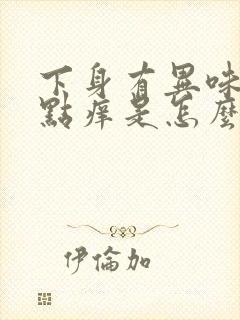 下身有異味
點痒是怎麼
伊倫加